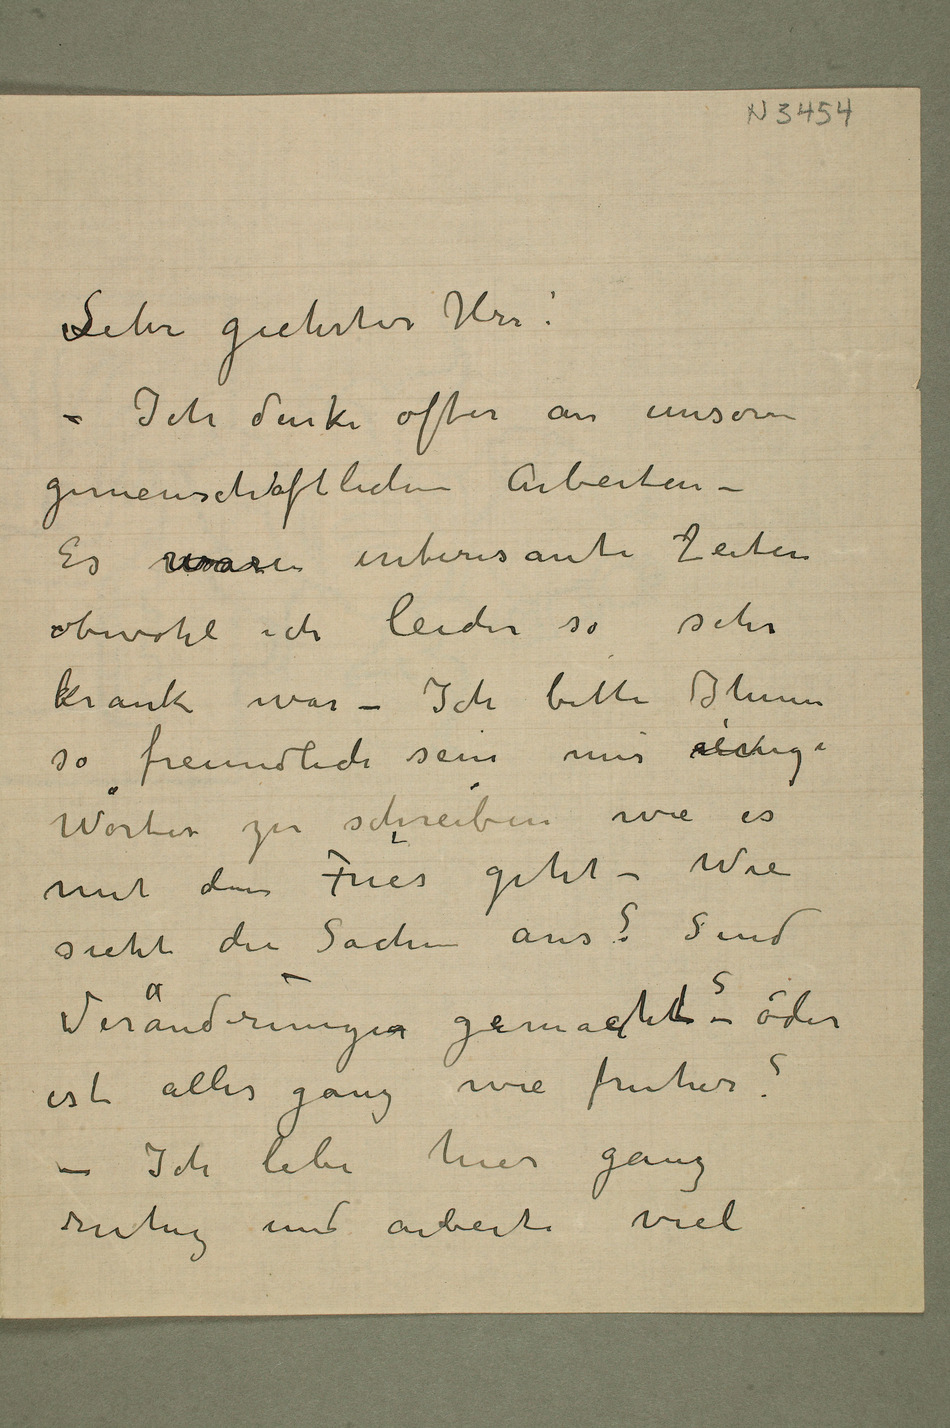 N 3454
Sehr geehrter Herr!
– Ich denke öfter an unsere
gemeinschaftlichen Arbeiten –
Es waren interesante Zeiten
obwohl ich leider so sehr
krank war – Ich bitte Ihnen
so freundlich sein mir einige
Wörter zu schreiben wie es
mit dem Fries geht – Wie
sieht die Sachen aus? Sind
Veränderungen gemacht? – öder
ist alles ganz wie früher?
– Ich lebe hier ganz
ruhig und arbeite viel